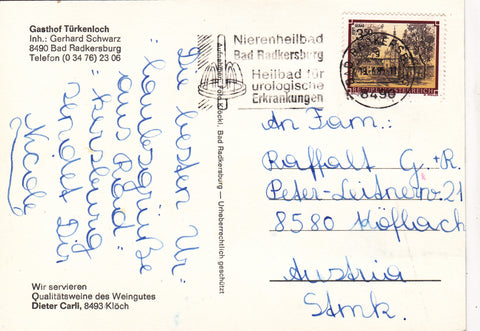 Gasthof Türkenloch
Inh.: Gerhard Schwarz
8490 Bad Radkersburg
Telefon (0 34 76) 23 06
Nierenheilbad
Bad Radkersburg
Heilbad für
urologische
Erkrankungen
8490
3.50
REPUBLIK ÖSTERREICH
Die besten Ur-
laubsgrüße
aus Rad-
kersburg
sendet Dir
Nicole
Bad Radkersburg — Urheberrechtlich geschützt
An Fam.:
Raffalt G.+R.
Peter-Leitnerw. 21
8580 Köflach
Austria
Stmk.
Wir servieren
Qualitätsweine des Weingutes
Dieter Carli, 8493 Klöch